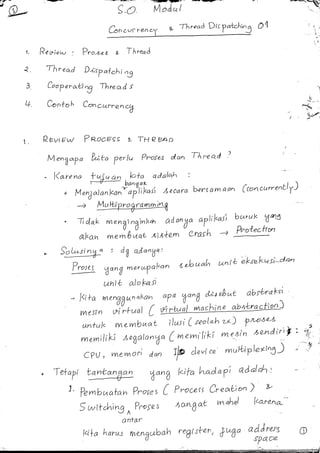 1
S.O. Modul
Concurrency & Thread Dispatching 01
1. Review : Proses & Thread
2. Thread Dispatching
3. Cooperating Threads
4. Contoh Concurrency
1. REVIEW PROCESS & THREAD
Mengapa kita perlu Proses dan Thread ?
- Karena tujuan kita adalah :
banyak
• Menjalankan aplikasi secara bersamaan (concurrently)
→ Multiprogramming
• Tidak menginginkan adanya aplikasi buruk yang
akan membuat sistem crash → Protection
- Solusinya : dg adanya:
Proses yang merupakan sebuah unit eksekusi dan
unit alokasi
- Kita menggunakan apa yang disebut abstraksi
mesin virtual ( virtual machine abstraction )
untuk membuat ilusi ( seolah2x ) proses
memiliki segalanya ( memiliki mesin sendiri :
CPU, memori dan I/o device multiplexing )
- Tetapi tantangan yang kita hadapi adalah :
1. Pembuatan Proses ( Process Creation ) &
Switching Proses sangat mahal karena
antar
kita harus mengubah register, juga address
space
1